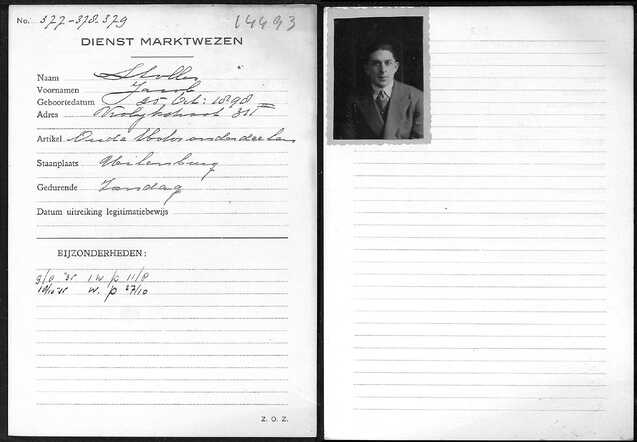 No. 377-378-379
14493
DIENST MARKTWEZEN
Naam Stoller
Voornamen Jacob
Geboortedatum 25 Oct: 1898
Adres Vrolijkstraat 311 II
Artikel Oude Motoronderdeelen
Staanplaats Uilenburg
Gedurende Zondag
Datum uitreiking legitimatiebewijs
BIJZONDERHEDEN:
w. p 27/10
Z. O. Z.